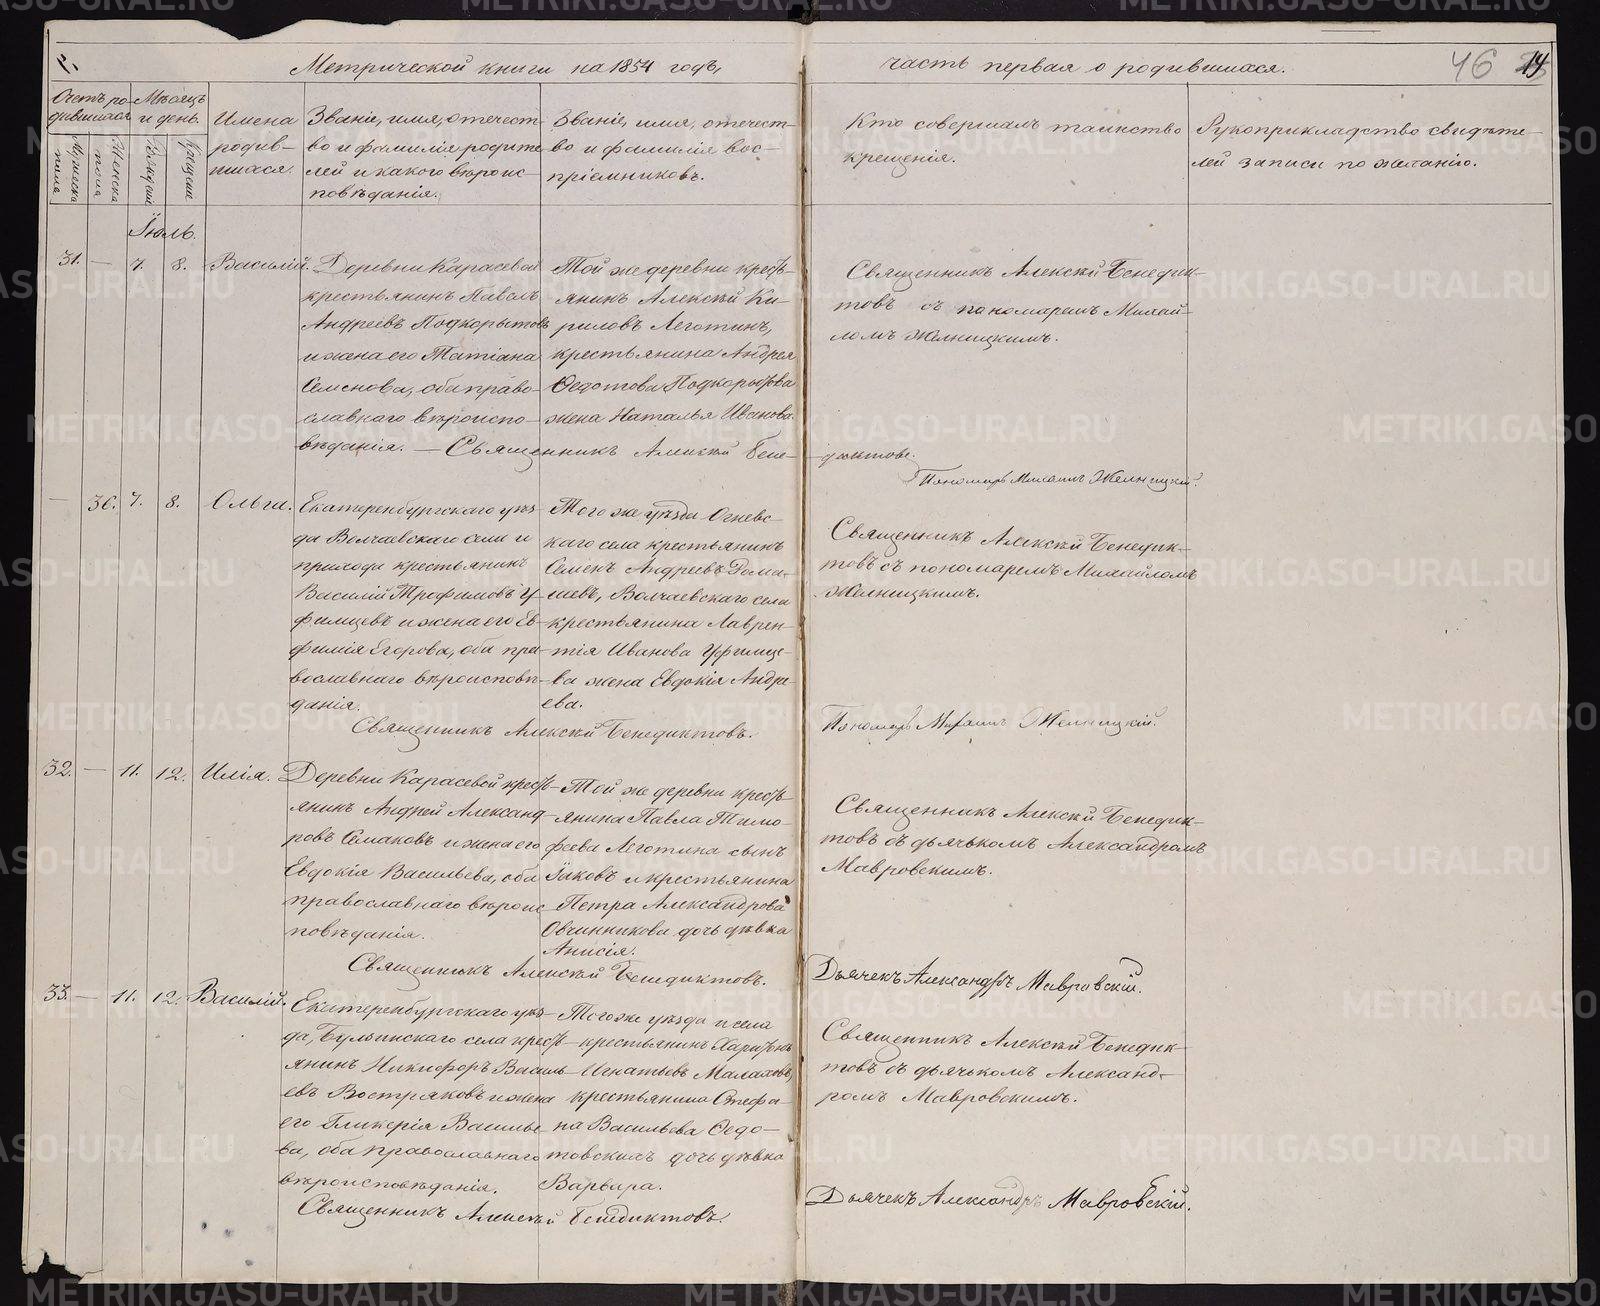 Метрической книги на 1854 годъ,
часть первая о родившихся.
46
14
Счетъ ро-
дившихся
Мѣсяцъ
и день.
Мужеска
пола
Женска
пола
Рожденія
Крещенія
Имена
родив-
шихся.
Званіе, имя, отечест-
во и фамилія родите-
лей и какого вѣроис-
повѣданія.
Званіе, имя, отечест-
во и фамилія вос-
пріемниковъ.
Кто совершалъ таинство
крещенія.
Рукоприкладство свидѣте-
лей записи по желанію.
Іюль.
31. — 7. 8. Василій.
Деревни Карасевой
крестьянинъ Павелъ
Андреевъ Подкорытовъ
и жена его Татіана
Семенова, оба право-
славнаго вѣроиспо-
вѣданія. —
Той же деревни кресть-
янинъ Алексѣй Ки-
риловъ Леготинъ,
крестьянина Андрея
Ѳедотова Подкорытова
жена Наталья Иванова.
Священникъ Алексѣй Бенедик-
товъ съ пономаремъ Михай-
ломъ Желницкимъ.
Священникъ Алексѣй Бене-
диктовъ.
Пономарь Михаилъ Желницкій.
— 36. 7. 8. Ольга.
Екатеринбургскаго уѣз-
да Волчаевскаго села и
прихода крестьянинъ
Василій Трофимовъ У-
фимцевъ и жена его Ев-
фимія Егорова, оба пра-
вославнаго вѣроисповѣ-
данія.
Того же уѣзда Огневс-
каго села крестьянинъ
Семенъ Андреевъ Дома-
шевъ, Волчаевскаго села
крестьянина Лаврен-
тія Иванова Уфимце-
ва жена Евдокія Андре-
ева.
Священникъ Алексѣй Бенедик-
товъ съ пономаремъ Михайломъ
Желницкимъ.
Священникъ Алексѣй Бенедиктовъ.
Пономарь Михаилъ Желницкій.
32. — 11. 12. Илія.
Деревни Карасевой кресть-
янинъ Андрей Александ-
ровъ Семаковъ и жена его
Евдокія Васильева, оба
православнаго вѣроис-
повѣданія.
Той же деревни кресть-
янина Павла Тимо-
феева Леготина сынъ
Іаковъ и крестьянина
Петра Александрова
Овчинникова дочь дѣвка
Анисія.
Священникъ Алексѣй Бенедик-
товъ съ дьячькомъ Александромъ
Мавровскимъ.
Священникъ Алексѣй Бенедиктовъ.
Дьячекъ Александръ Мавровскій.
33. — 11. 12. Василій.
Екатеринбургскаго уѣз-
да, Булзинскаго села кресть-
янинъ Никифоръ Василь-
евъ Востряковъ и жена
его Гликерія Василье-
ва, оба православнаго
вѣроисповѣданія.
Того же уѣзда и села
крестьянинъ Харитонъ
Игнатьевъ Малаховъ,
крестьянина Стефа-
на Васильева Ѳедо-
товскихъ дочь дѣвка
Варвара.
Священникъ Алексѣй Бенедик-
товъ съ дьячькомъ Александ-
ромъ Мавровскимъ.
Священникъ Алексѣй Бенедиктовъ.
Дьячекъ Александръ Мавровскій.
METRIKI.GASO-URAL.RU